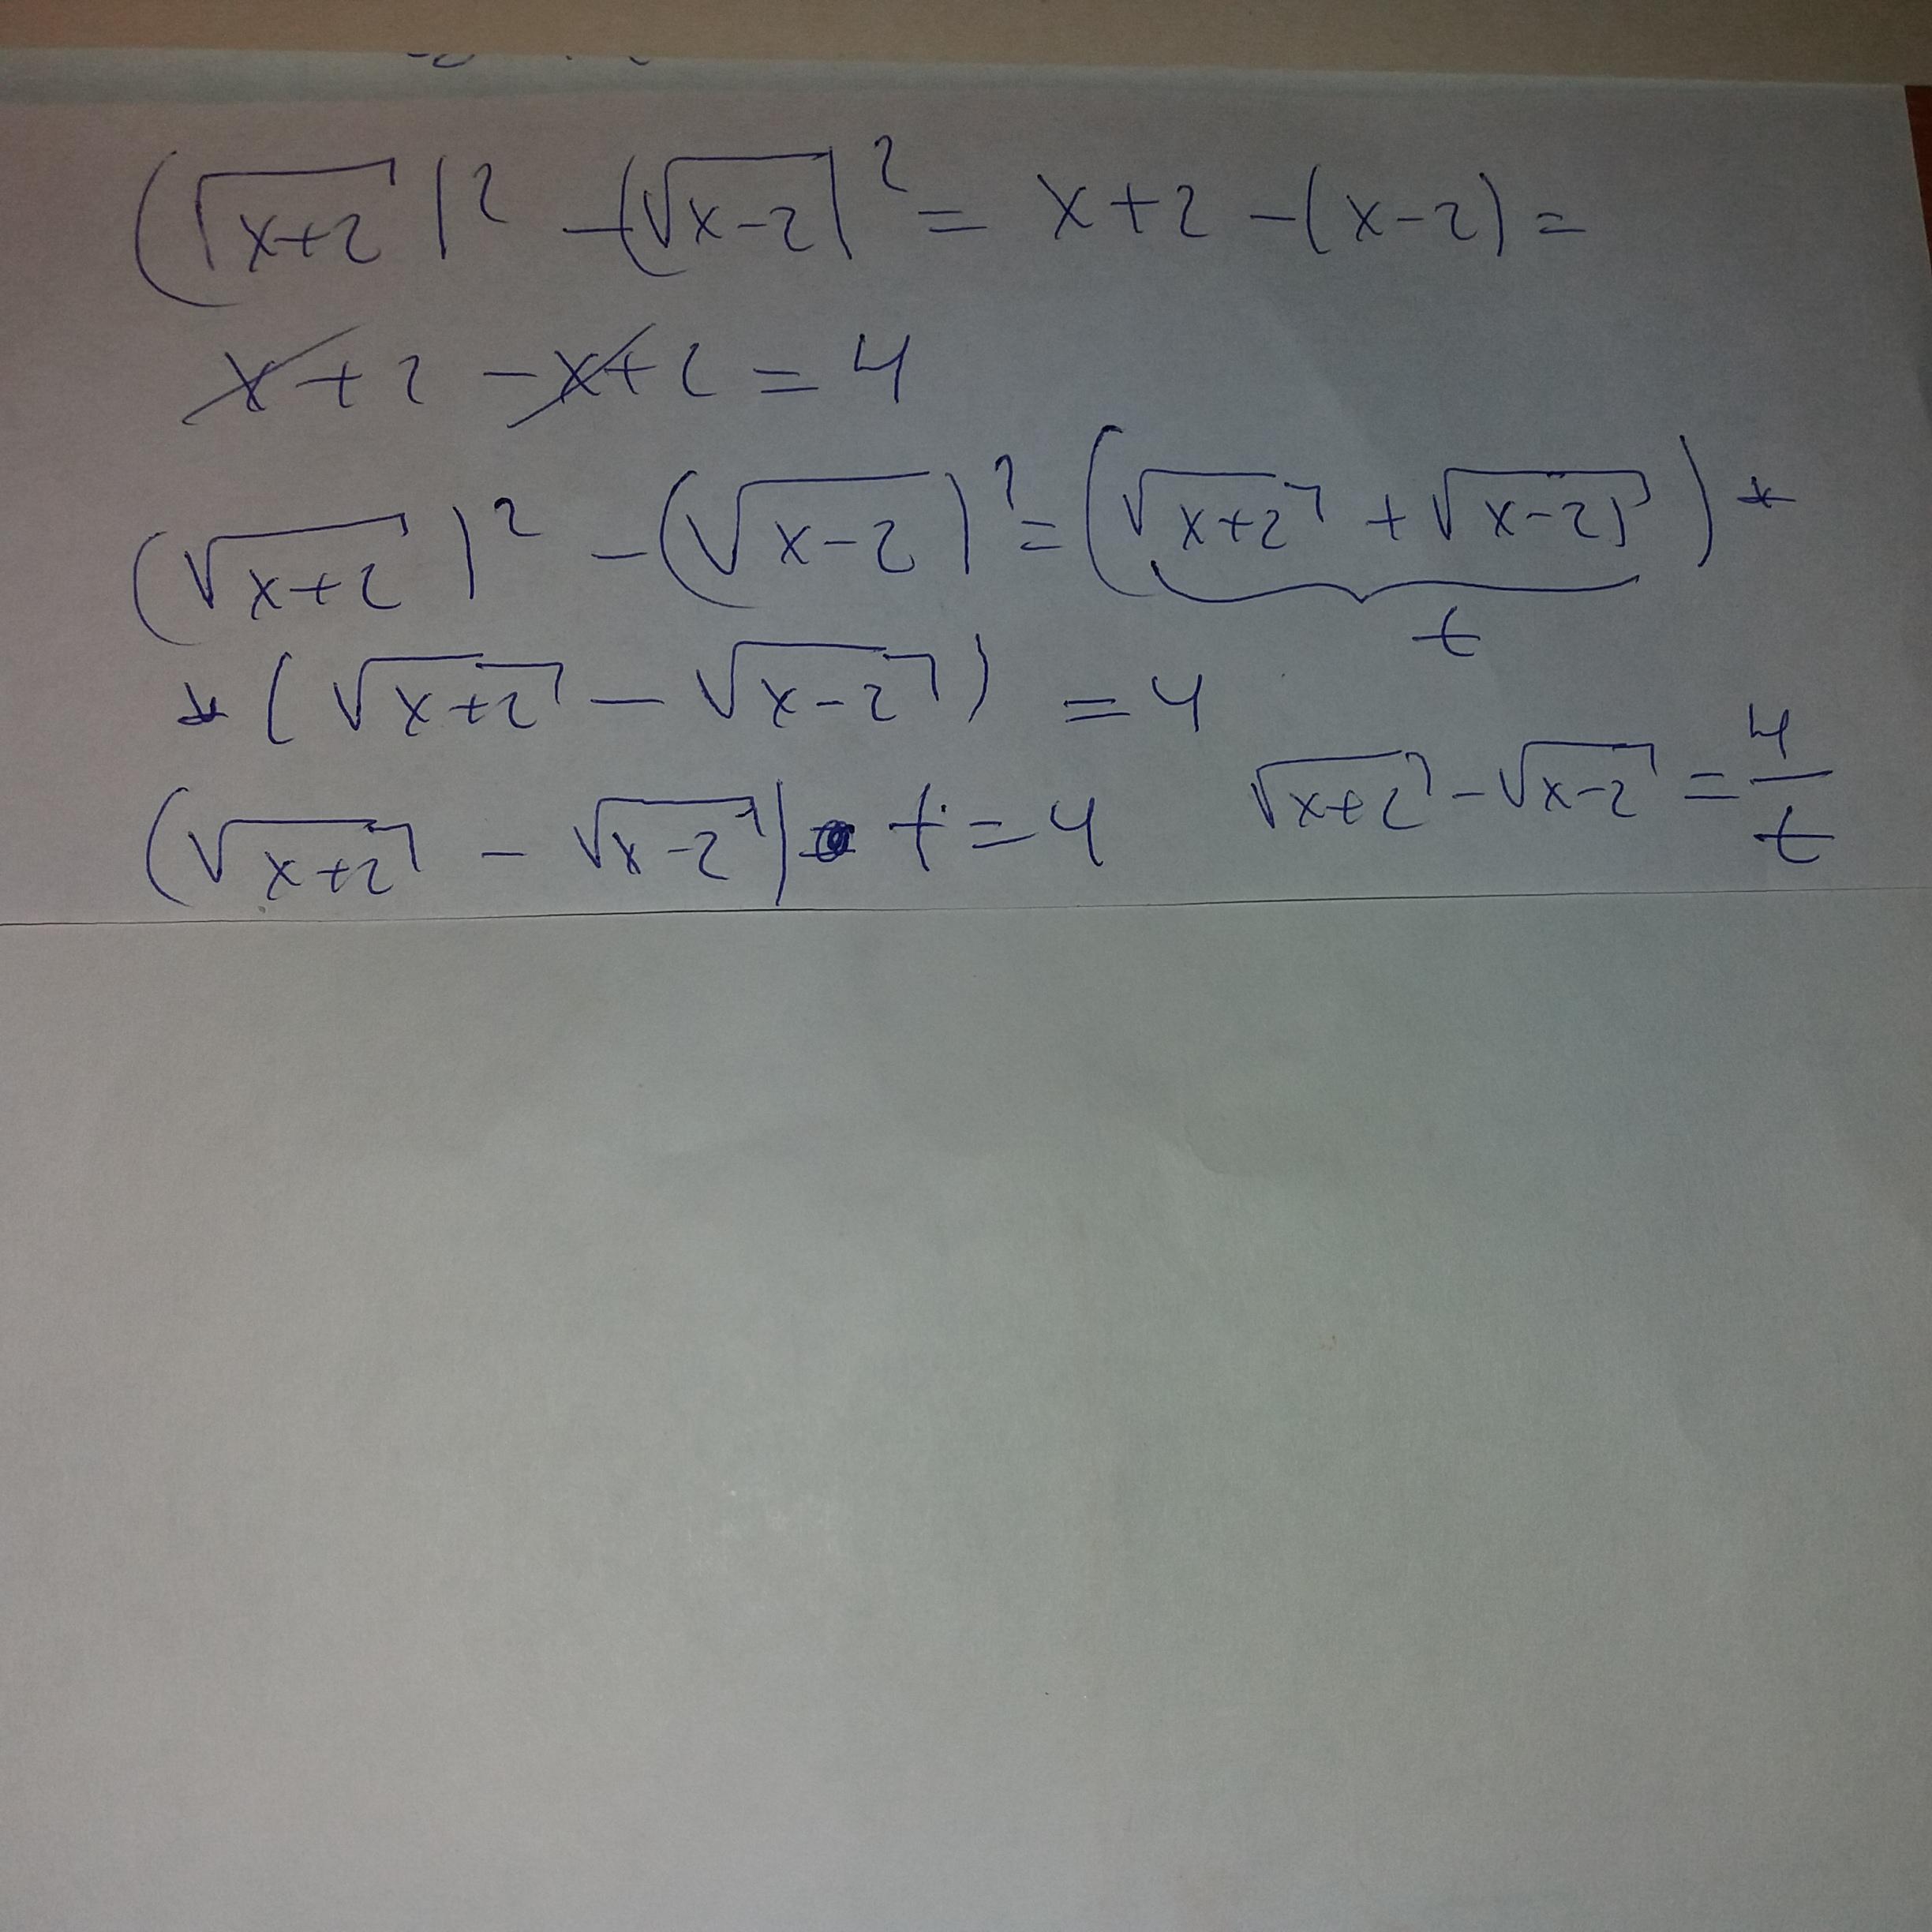 (√(x+2))² - (√(x-2))² = x+2 - (x-2) =
x+2 - x+2 = 4
(√(x+2))² - (√(x-2))² = (√(x+2) + √(x-2)) *
t
* (√(x+2) - √(x-2)) = 4
(√(x+2) - √(x-2)) t = 4 √(x+2) - √(x-2) = 4/t